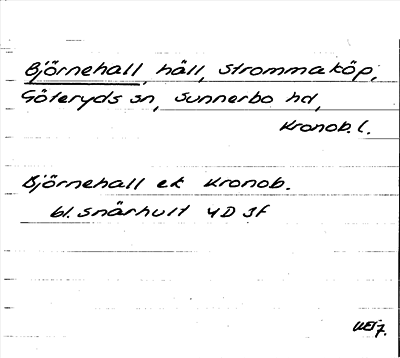 Björnehall, häll, Strommaköp,
Göteryds sn, Sunnerbo hd,
Kronob. l.
Björnehall ek Kronob.
bl. Snärhult 4D 3f